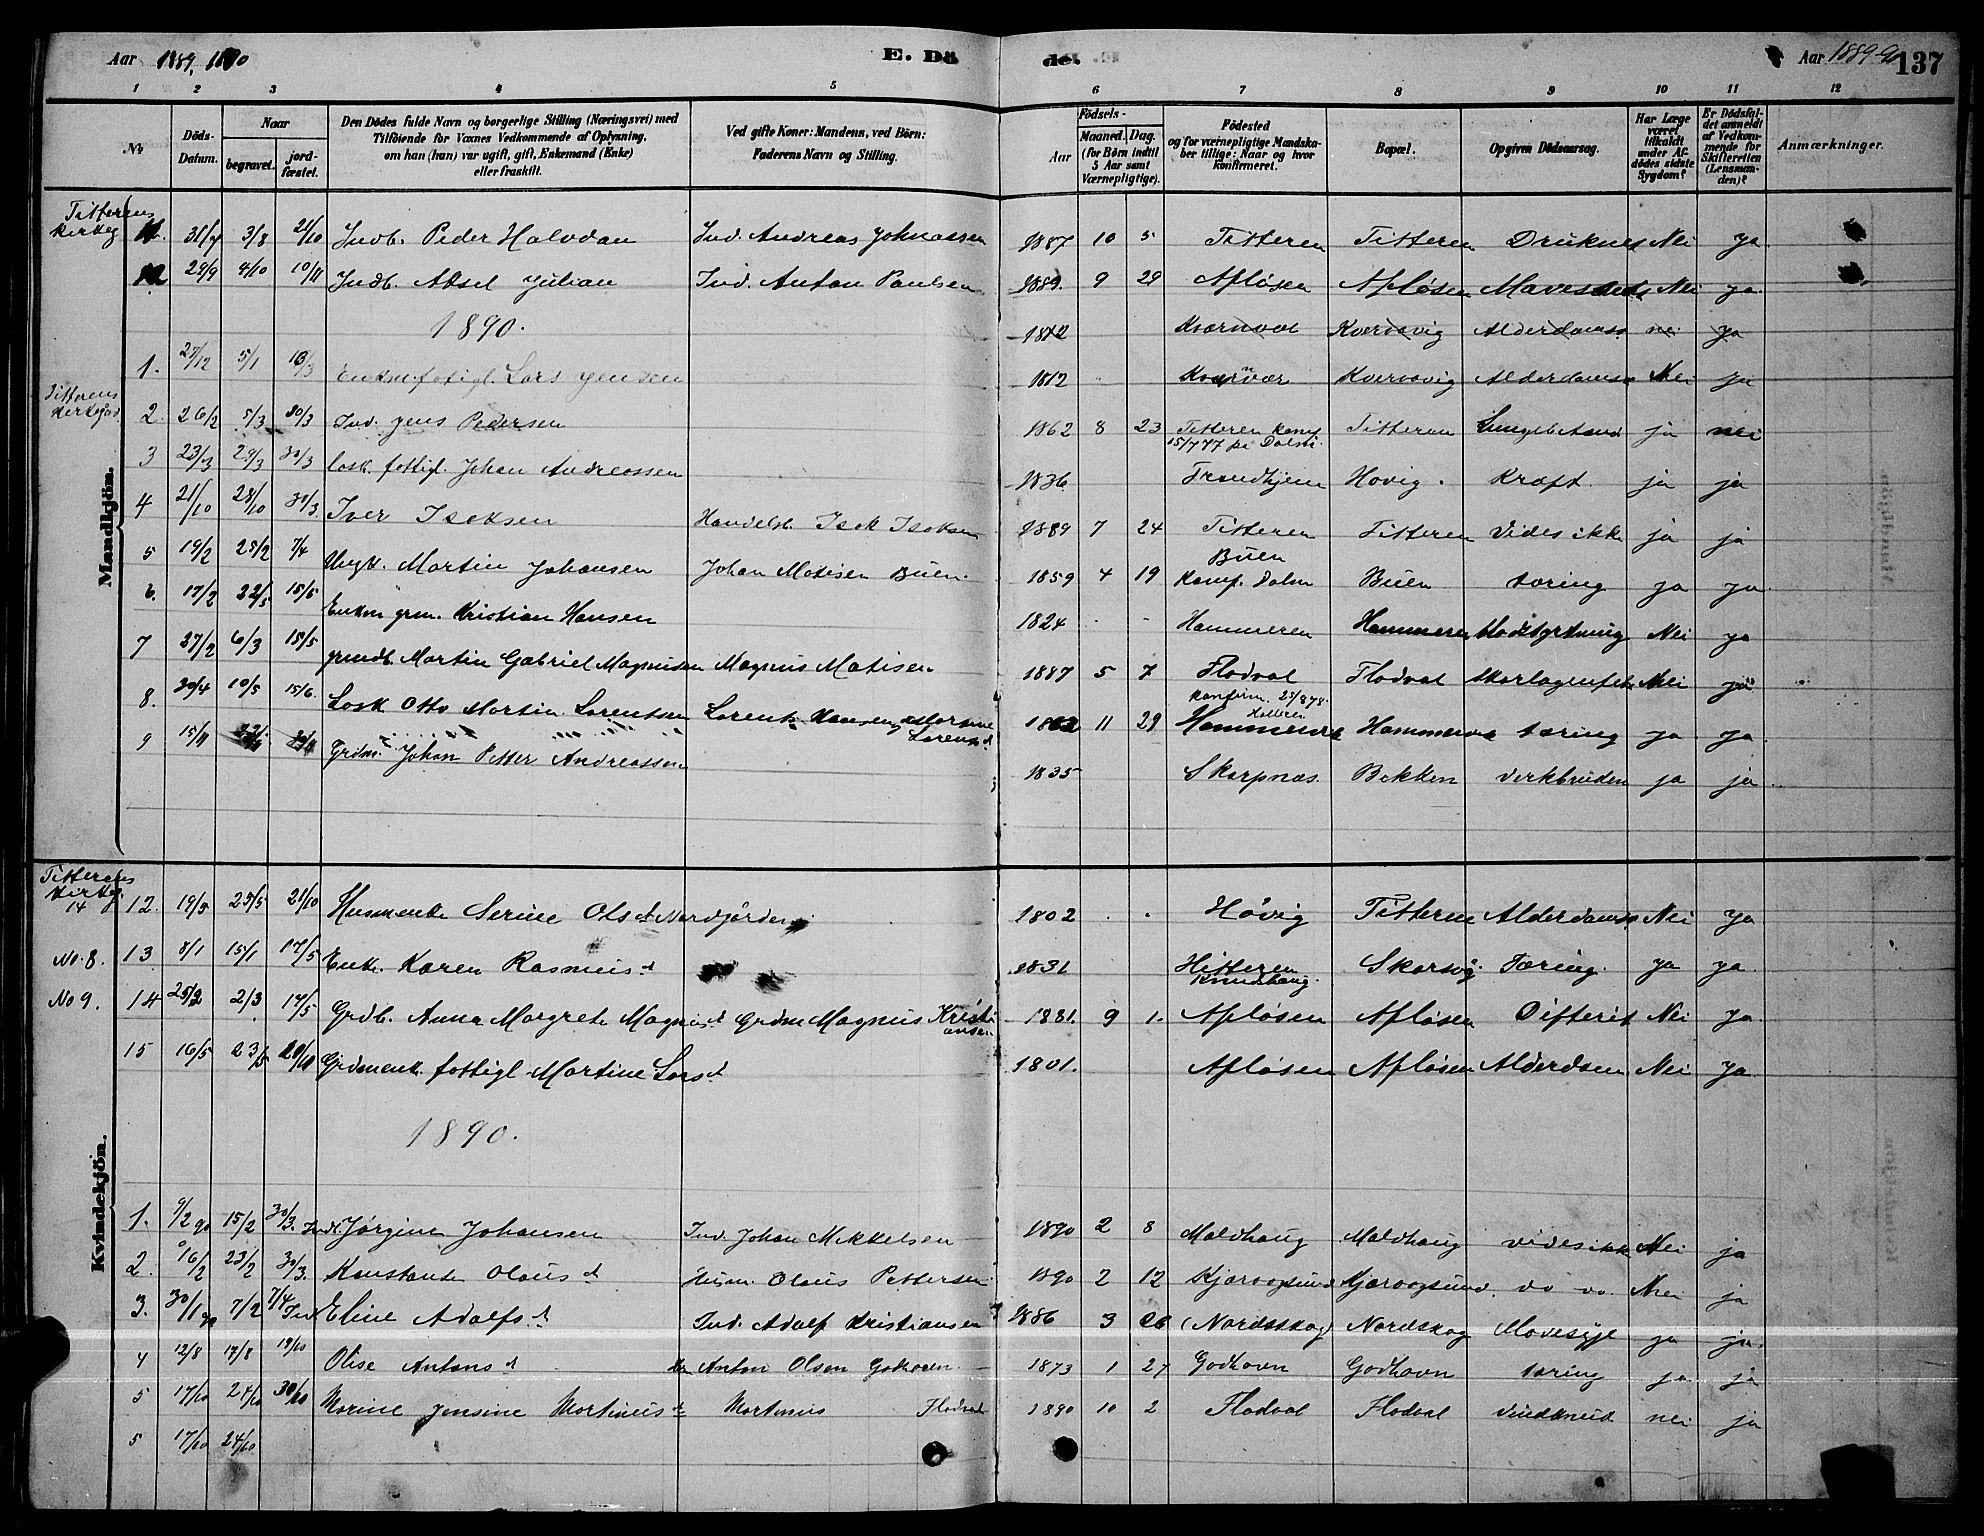 Aar 1889, 1890 E. Dö
de. Aar 1889-90 137
1 2 3 4 5
6 7 8 9 10 11 12
No
Döds-Datum.
Naar
begravet.
jord-fæstet.
Den Dödes fulde Navn og borgerlige Stilling (Næringsvei) med
Tilföiende for Voxnes Vedkommende af Oplysning,
om han (hun) var ugift, gift, Enkemand (Enke)
eller fraskilt.
Ved gifte Koner: Mandens, ved Börn:
Faderens Navn og Stilling.
Födsels-
Aar
Maaned.
Dag.
(for Börn indtil
5 Aar samt
Værnepligtige).
Födested
og for værnepligtige Mandska-
ber tillige: Naar og hvor
konfirmeret.
Bopæl.
Opgiven Dödsaarsag.
Har Læge
været
tilkaldt
under Af-
dödes sidste
Sygdom?
Er Dödsfal-
det anmeldt
af Vedkom-
mende for
Skifteretten
(Lensman-
den)?
Anmærkninger.
Mandkjön.
Titterens Kirkeg 11. 31/7 3/8 21/10 Indb. Peder Halvdan Ind. Andreas Johnassen 1887 10 5 Titteren Titteren Druknet Nei ja
12 29/9 4/10 10/11 Indb. Aksel Julian Ind. Anton Paulsen 1889. 9 29 Afløsen Afløsen Nei ja
1890.
1812 Kvernvig Alderdomss nei ja
1. 27/12 5/1 Enkm. fattigl. Lars Jensen 1812 Kværvær Kvernvig Alderdomss Nei ja
Titterens Kirkegård 2. 26/2 5/3 30/3 Ind. Jens Pedersen 1862 8 23 Titteren konf 15/7 77 på Dolm Titteren Lungebetænd ja nei
3 23/3 29/3 30/3 Losk. fattigl. Johan Andreassen 1836 Trondhjem Hovig. Kræft. ja ja
4 21/10 28/10 30/3 Iver Isaksen Handelsb. Isak Isaksen 1889 7 24 Titteren Titteren Vides ikke ja ja
5 19/2 25/2 7/4 Ungk. Martin Johansen Johan Matisen Buen. 1859 4 19 Buen Konf. Dolm Buen tæring ja ja.
6. 22/5 15/5 Enkm grm. Kristian Hansen 1824 - - Hammeren Hammeren Blodstyrtning Nei ja
7 27/2 6/3 18/5 grmdb. Martin Gabriel Magnusen Magnus Matisen 1887 5 7 Flodval Flodval Skarlagensfeb. Nei ja
8. 30/4 10/5 15/6. Losk Otto Martin Lorentsen Lorents Hansen 1862 11 29 konfirm. 29/9 78. Hammeren tæring ja ja
9 15/11 Grdm. Johan Petter Andreassen 1835 Skarpnæs Bekken verkbruden ja ja
Kvindekjön.
Titterens Kirkeg 14 12. 19/5 25/5 21/10 Husmenke Serine Olsdt Nordgården. 1802 . . Høvig Titteren Alderdomss Nei ja
No. 8. 13 8/1 15/1 17/5 Enke Karen Rasmusdt 1831 Hitteren Knudshaug. Skarsvåg. Tæring. ja ja.
No 9. 14 25/2 2/3 17/5 Grdb. Anna Margrete Magnusdt Grdm Magnus Kristiansen 1881. 9 1. Afløsen Afløsen Difterit Nei ja.
15 16/5 23/5 20/10 Grdmenk. fattigl. Martine Larsdt 1801. Afløsen Afløsen Alderdom Nei ja
1890.
1. 9/2 90 15/2 30/3. Ind. Jørgine Johansen Ind. Johan Mikkelsen 1890 2 8 Moldhaug Moldhaug vides ikke Nei ja
2. 16/2 23/2 30/3. Konstanse Olausdt Husm. Olaus Pettersen 1890 2 12 Kjærvågsund Kjærvågsund. do do. Nei ja
3. 30/1 90 7/2 7/4 Ind. Eline Adolfsdt Ind. Adolf Kristiansen 1886 3 26 (Nordskag) Nordskag Mavesyge ja ja.
4 12/8 17/8 19/10 Olise Antonsdt Anton Olsen Godhavn. 1873 1 27 Godhavn Godhavn tæring ja ja
5 17/10 24/10 30/10 Marine Jensine Martinusdt Martinus Flodval 1890 10 2 Flodval Flodval nei ja
5 17/10 24/10